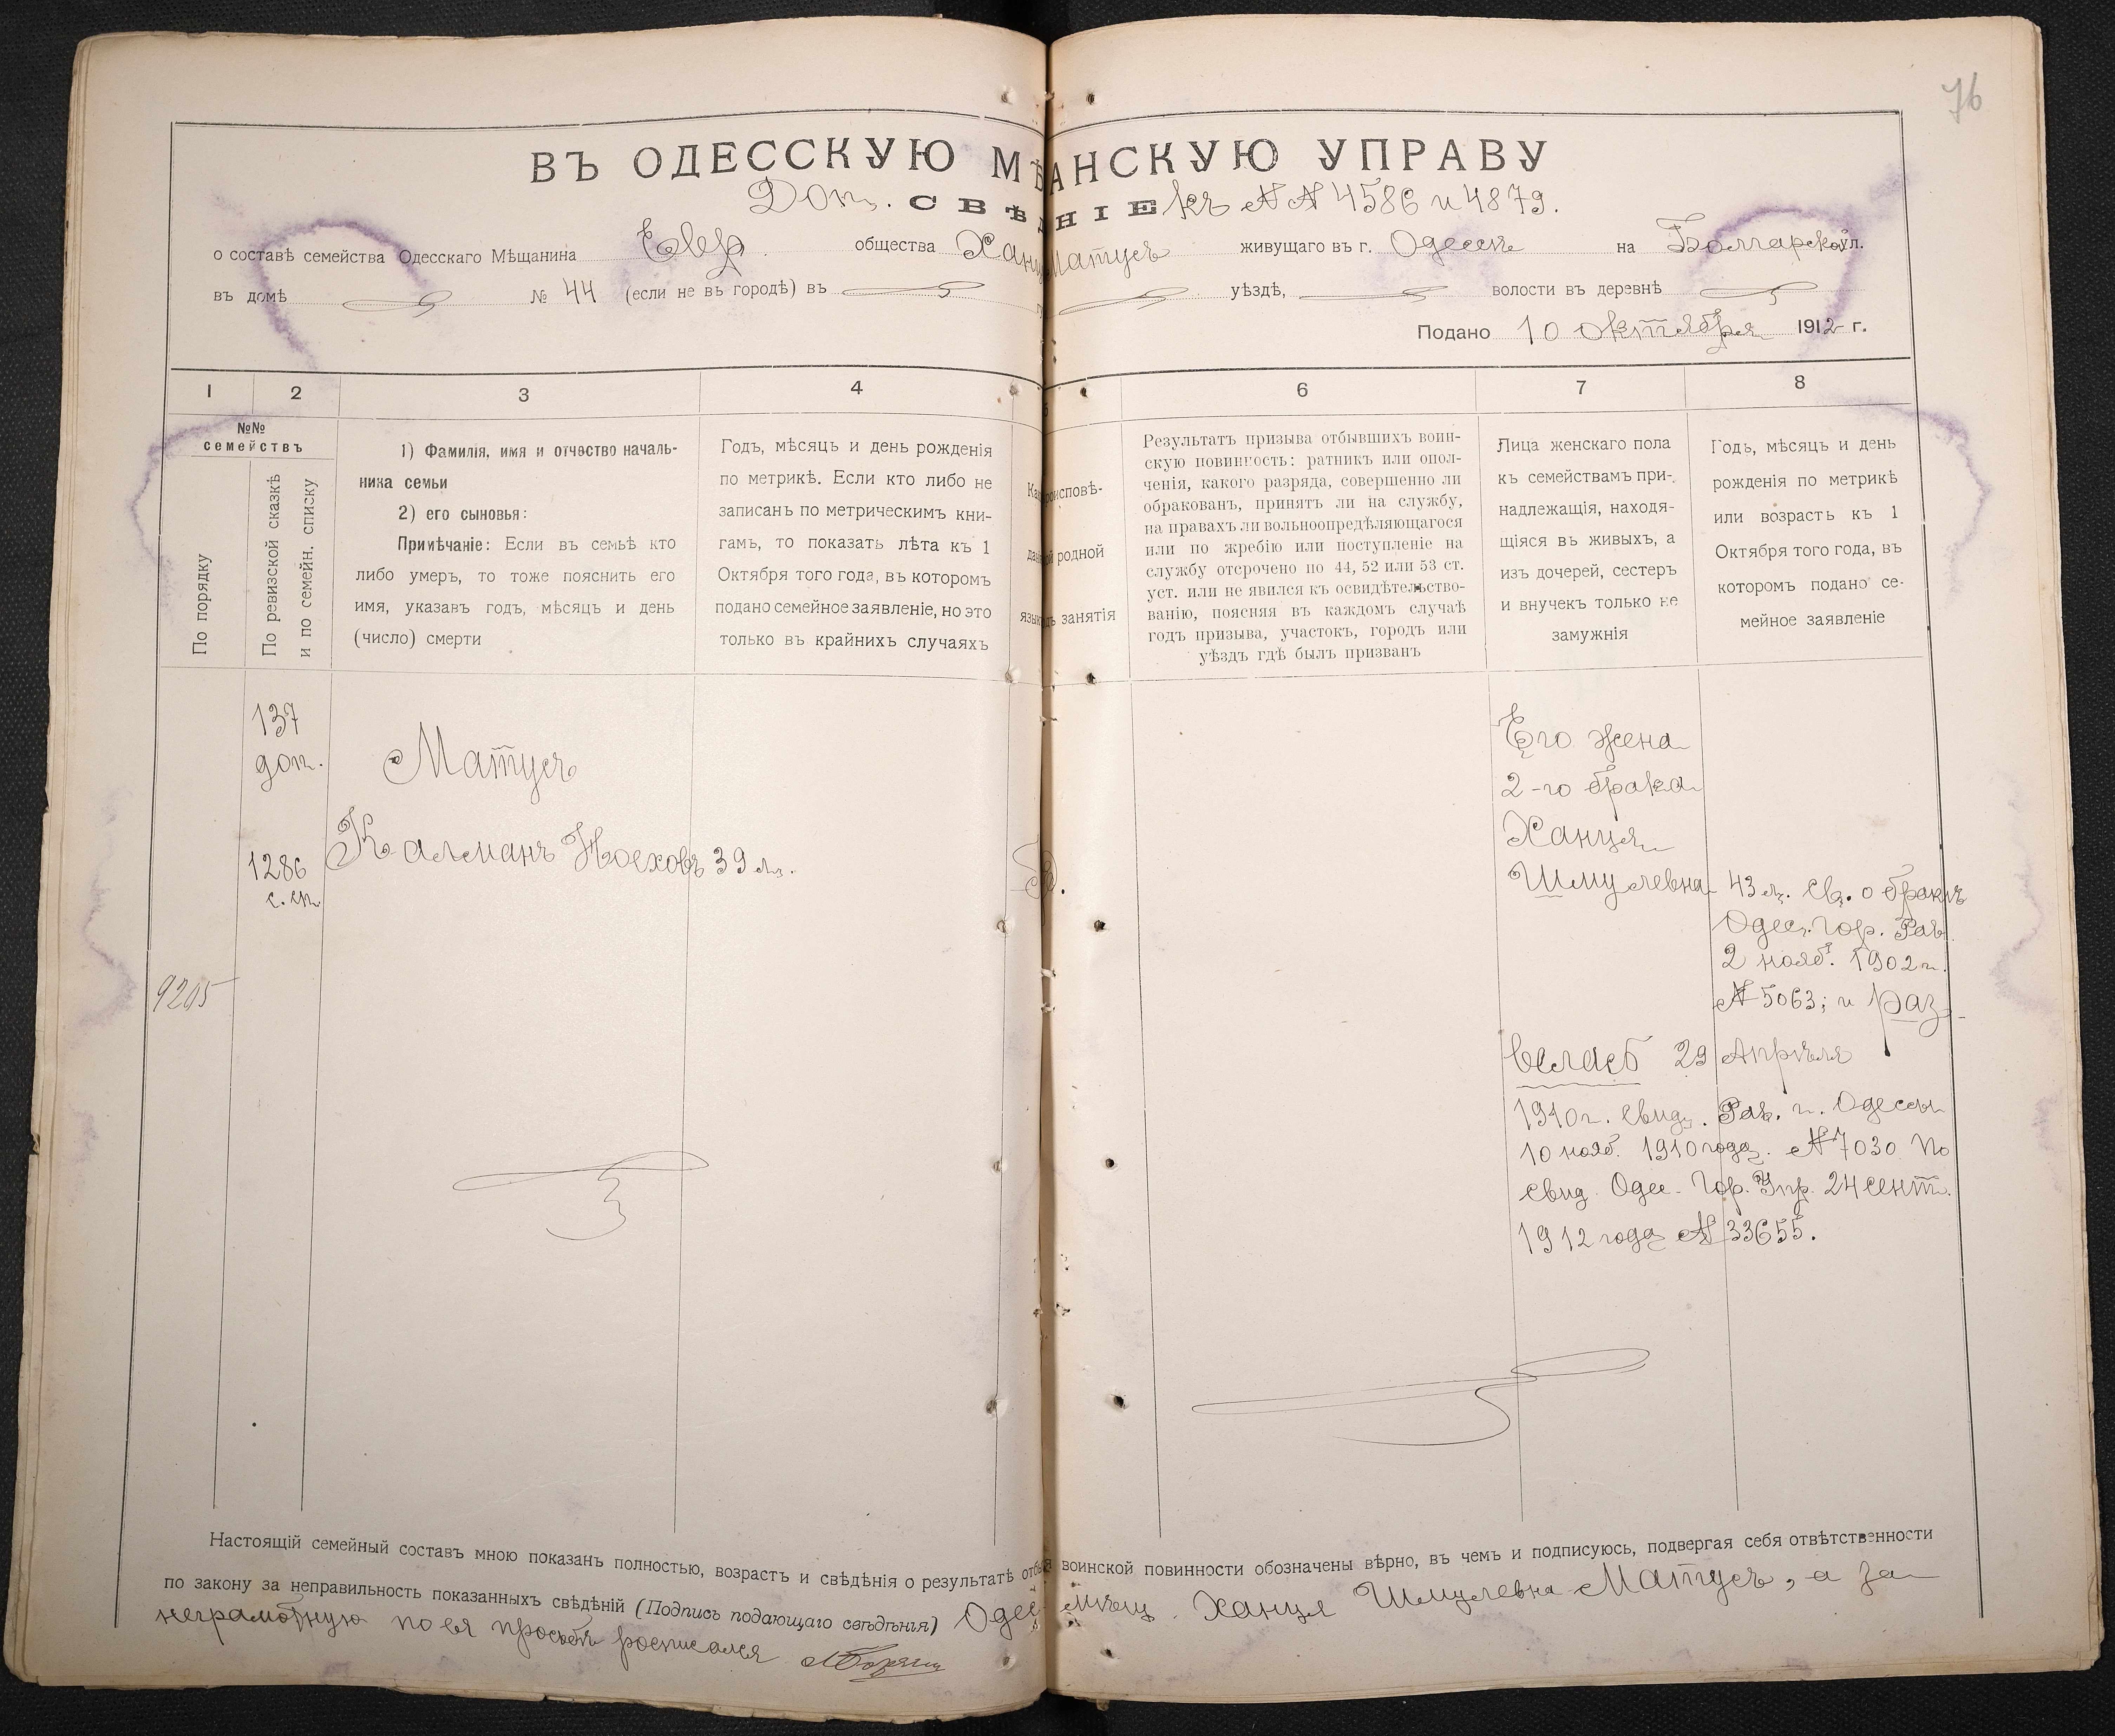 76
ВЪ ОДЕССКУЮ МѢ АНСКУЮ УПРАВУ
Доп. СВѢ НІЕ къ №№ 4586 и 4879.
о составѣ семейства Одесскаго Мѣщанина Евр. общества Ханц Матусъ живущаго въ г. Одессѣ на Болгарской ул.
въ домѣ № 44 (если не въ городѣ) въ уѣздѣ, волости въ деревнѣ
Подано 10 октября 1912 г.
1 2 3 4 5 6 7 8
№№
семействъ
По порядку
По ревизской сказкѣ
и по семейн. списку
1) Фамилія, имя и отчество началь-
ника семьи
2) его сыновья:
Примѣчаніе: Если въ семьѣ кто
либо умеръ, то тоже пояснить его
имя, указавъ годъ, мѣсяцъ и день
(число) смерти
Годъ, мѣсяцъ и день рожденія
по метрикѣ. Если кто либо не
записанъ по метрическимъ кни-
гамъ, то показать лѣта къ 1
Октября того года, въ которомъ
подано семейное заявленіе, но это
только въ крайнихъ случаяхъ
Ка роисповѣ-
да й родной
язык дъ занятія
Результатъ призыва отбывшихъ воин-
скую повинность: ратникъ или опол-
ченія, какого разряда, совершенно ли
обракованъ, принятъ ли на службу,
на правахъ ли вольноопредѣляющагося
или по жребію или поступленіе на
службу отсрочено по 44, 52 или 53 ст.
уст. или не явился къ освидѣтельство-
ванію, поясняя въ каждомъ случаѣ
годъ призыва, участокъ, городъ или
уѣздъ гдѣ былъ призванъ
Лица женскаго пола
къ семействамъ при-
надлежащія, находя-
щіяся въ живыхъ, а
изъ дочерей, сестеръ
и внучекъ только не
замужнія
Годъ, мѣсяцъ и день
рожденія по метрикѣ
или возрастъ къ 1
Октября того года, въ
которомъ подано се-
мейное заявленіе
137
доп.
1286
с. сп.
9205
Матусъ
Калманъ Ноеховъ 39 л.
Его жена
2-го брака
Ханця
Шмулевна 43 л. Св. о бракѣ
Одес. Гор. Рав.
2 нояб. 1902 г.
№ 5063; и раз-
велась 29 Апрѣля
1910 г. свид. Рав. г. Одессы
10 нояб. 1910 года. № 7030 По
свид. Одес. Гор. Упр. 24 сент.
1912 года № 33655.
Настоящій семейный составъ мною показанъ полностью, возрастъ и свѣдѣнія о результатѣ отбы воинской повинности обозначены вѣрно, въ чемъ и подписуюсь, подвергая себя отвѣтственности
по закону за неправильность показанныхъ свѣдѣній (Подпись подающаго свѣдѣнія) Одес. мѣщ. Ханця Шмулевна Матусъ, а за
неграмотную по ея просьбѣ росписался